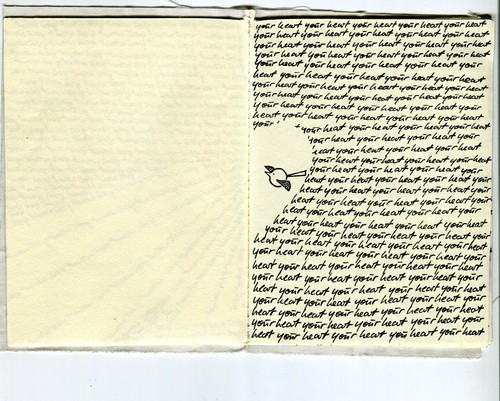 your heart your heart your heart your heart your heart
your heart your heart your heart your heart your heart
your heart your heart your heart your heart your heart
your heart your heart your heart your heart your heart
your heart your heart your heart your heart your
heart your heart your heart your heart your heart
your heart your heart your heart your heart your heart
your heart your heart your heart your heart your heart
your heart your heart your heart your heart your heart
heart your heart your heart your heart your heart
your your heart your heart your heart your heart
your heart your heart your heart your heart
heart your heart your heart your heart
your heart your heart your heart your heart
your heart your heart your heart your heart
heart your heart your heart your heart your heart
heart your heart your heart your heart your heart
heart your heart your heart your heart your heart
heart your heart your heart your heart your
heart your heart your heart your heart your heart
your heart your heart your heart your heart your
heart your heart your heart your heart your heart
your heart your heart your heart your heart your heart
heart your heart your heart your heart your heart
your heart your heart your heart your heart your heart
heart your heart your heart your heart your heart
your heart your heart your heart your heart your heart
heart your heart your heart your heart your heart
your heart your heart your heart your heart your heart
heart your heart your heart your heart your heart